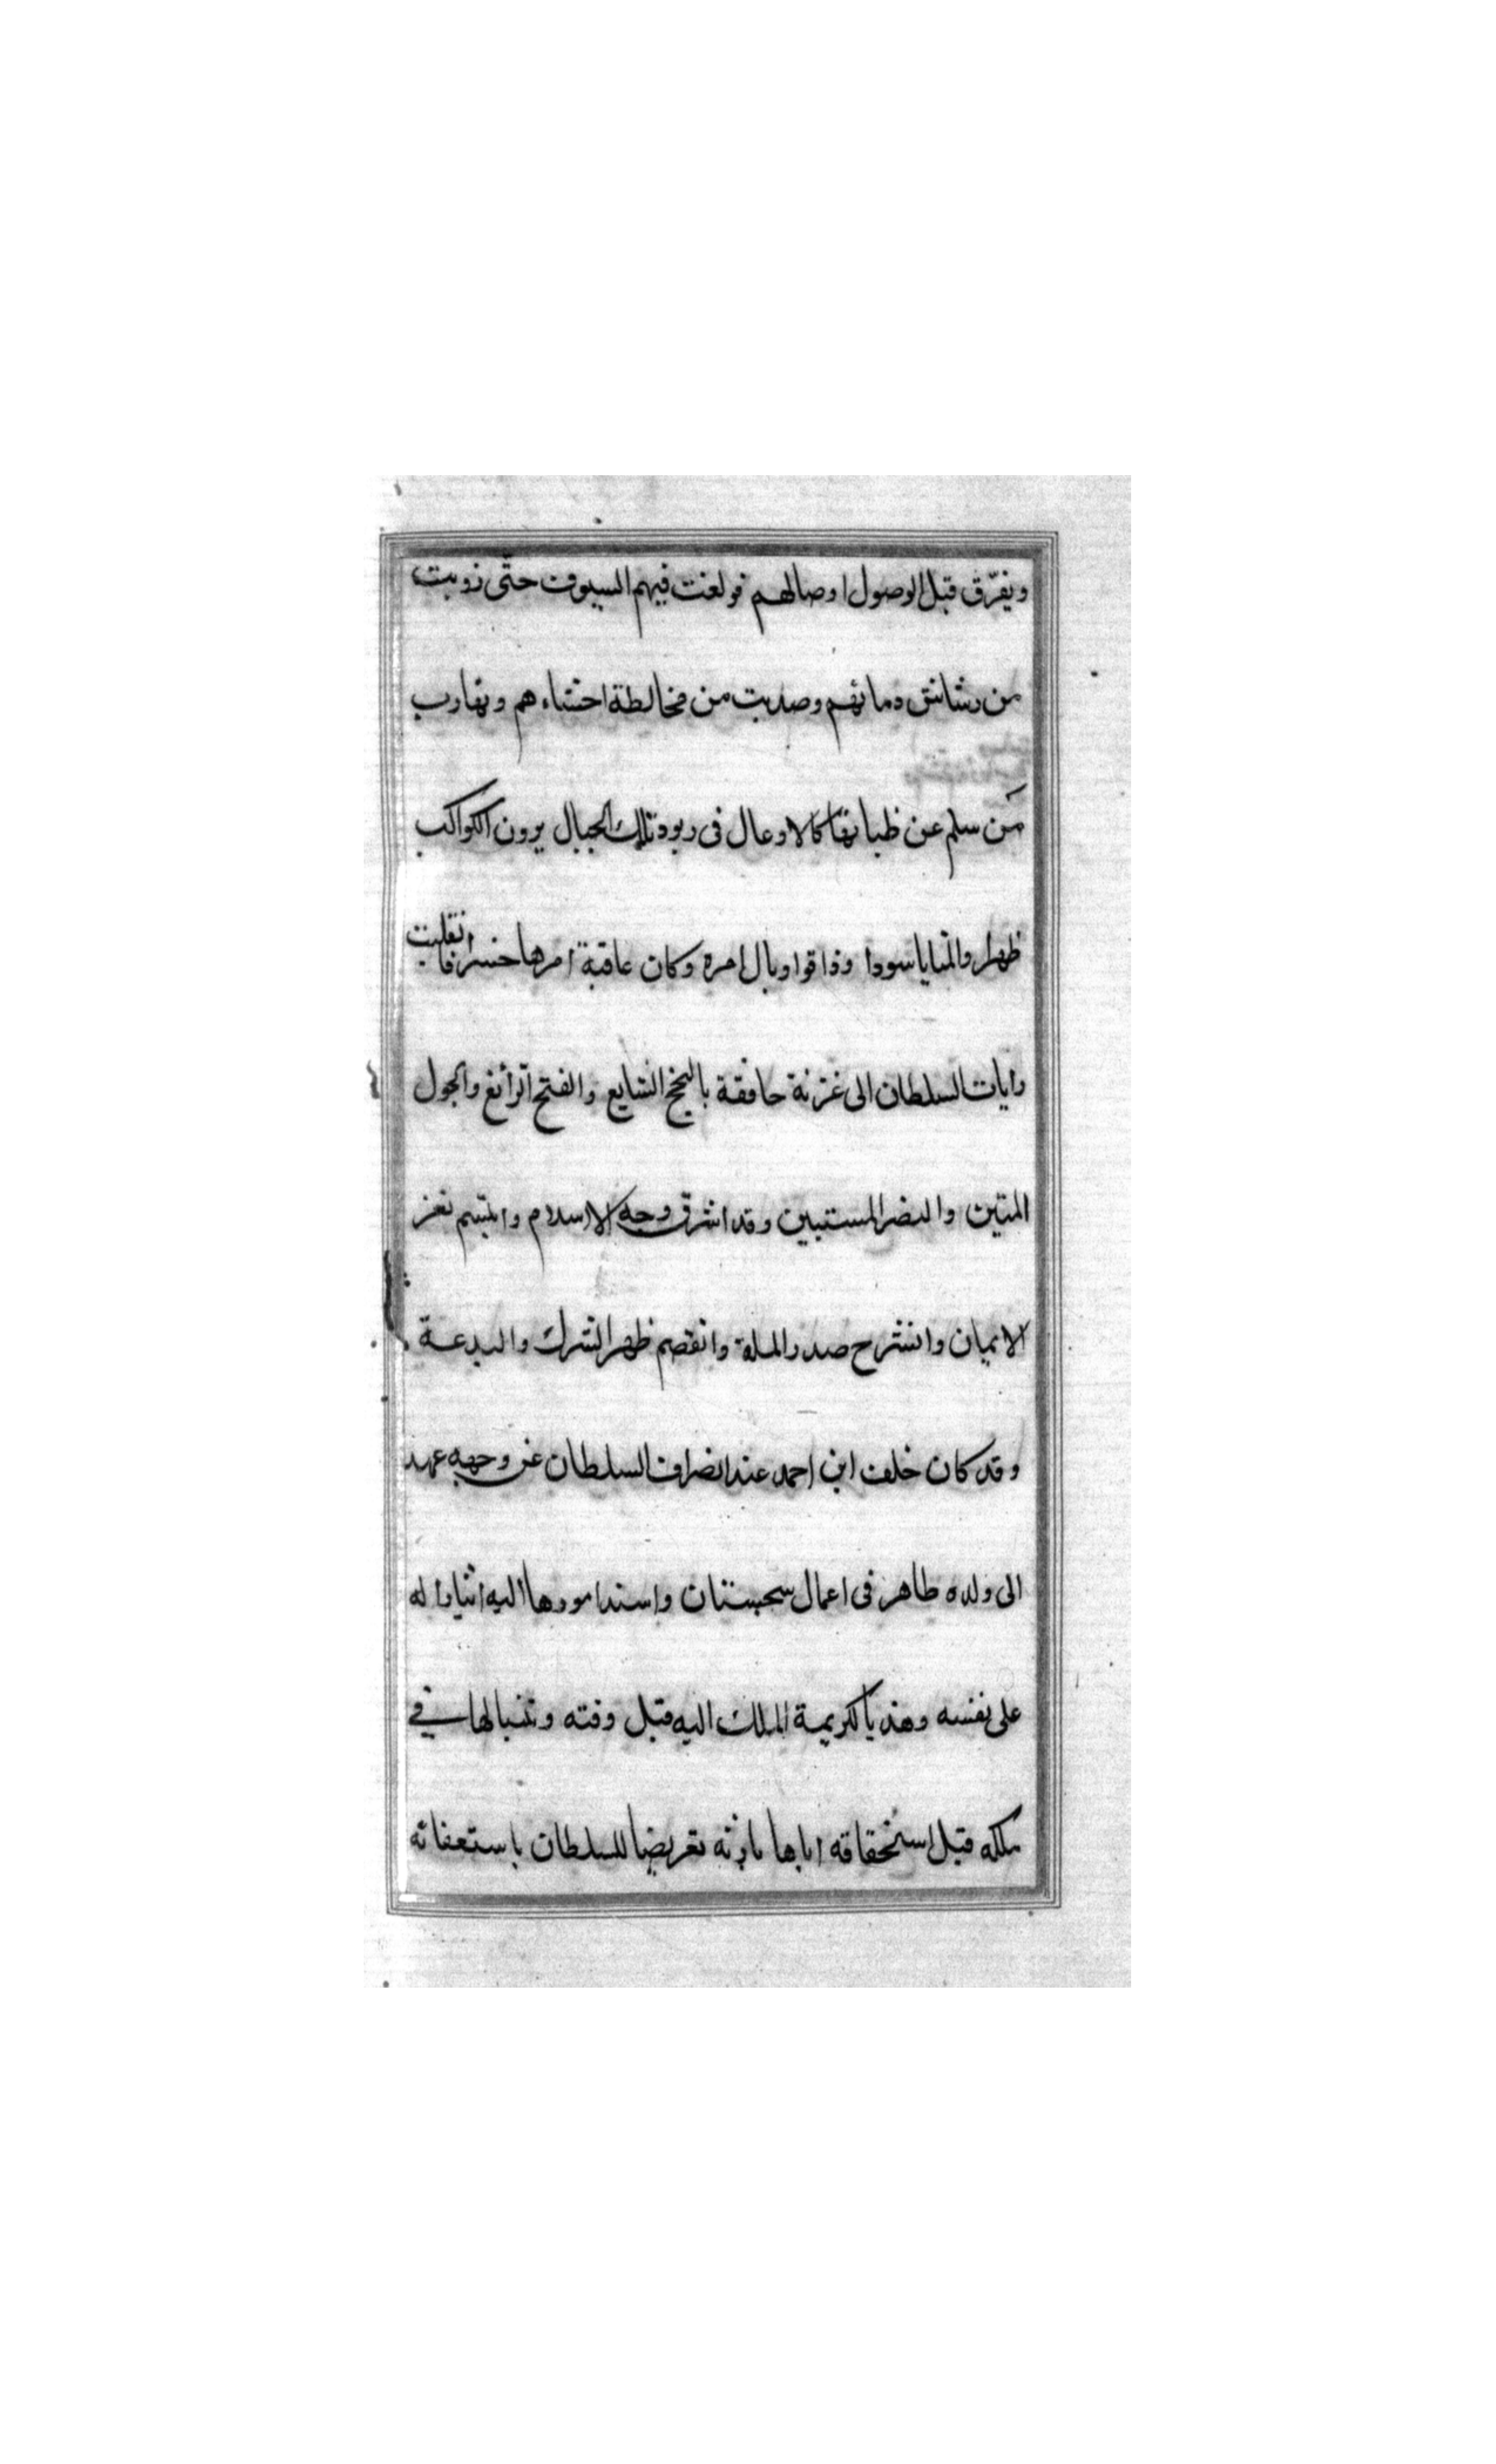 ويفرّق قبل الوصول اوصالهم فولغت فيهم السيوف حتى رويت
من رشاش دمائهم وصديت من مخالطة احشاءهم وتهارب
من سلم عن ظباتها كالاوعال فى ربود تلك الجبال يرون الكواكب
ظهرا والمنايا سودا وذاقوا وبال امره وكان عاقبة امرها خسرا فانقلبت
رايات السلطان الى غزنة خافقة بالنجح الشايع والفتح الرائع والحول
المتين والنصر المستبين وقد اشرق وجه الاسلام وابتسم ثغر
الايمان وانشرح صدر الملة وانقصم ظهر الشرك والبدعة
وقد كان خلف ابن احمد عند انصراف السلطان عن وجهه عهد
الى ولده طاهر فى اعمال سجستان واسند امورها اليه ايثارا له
على نفسه وهديا لكريمة الملك اليه قبل وقته في
ملكه قبل استحقاقه اياها بارثه تعريضا للسلطان باستعفائه